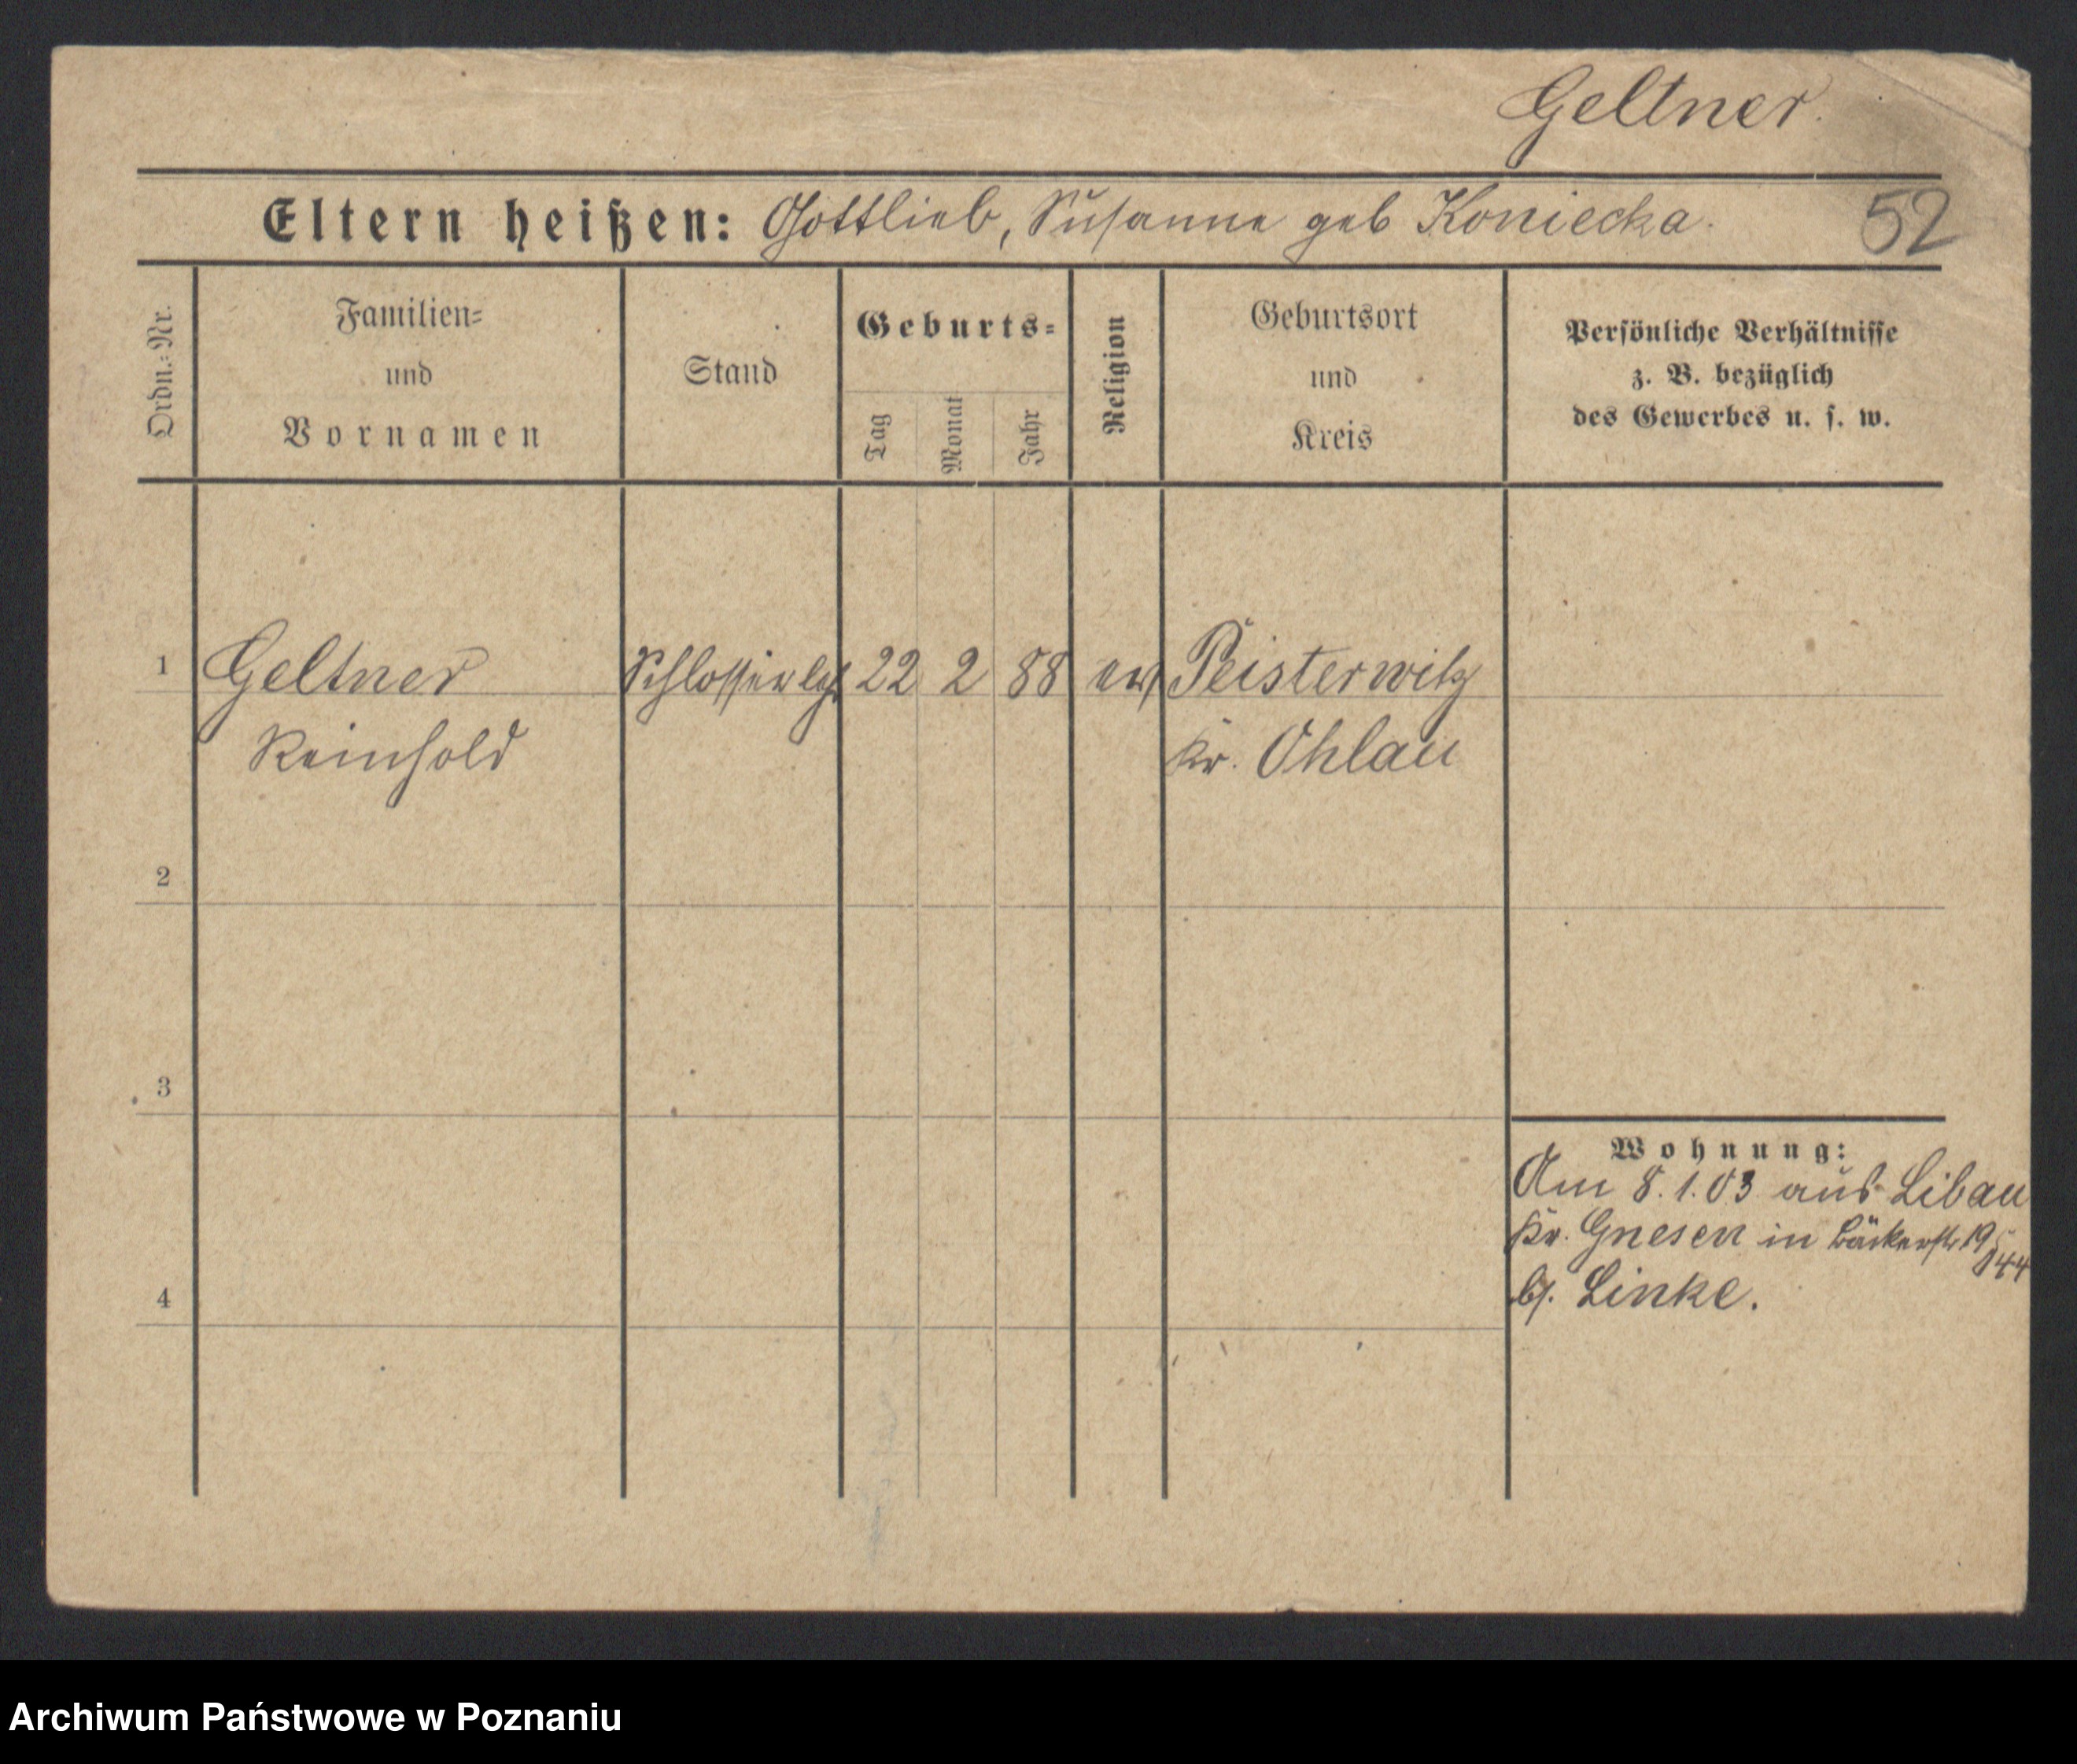 Geltner.
Eltern heißen: Gottlieb, Susanne geb Koniecka.
52
Ordn.-Nr.
Familien-
und
Vornamen
Stand
Geburts-
Tag
Monat
Jahr
Religion
Geburtsort
und
Kreis
Persönliche Verhältnisse
z. B. bezüglich
des Gewerbes u. s. w.
1 Geltner Schlosserlehrl 22 2 88 ev Peisterwitz
Reinhold Kr. Ohlau
2
3
Wohnung:
Am 8.1.03 aus Libau
Kr. Gnesen in Bäckerstr 19
b/. Linke.
4
Archiwum Państwowe w Poznaniu